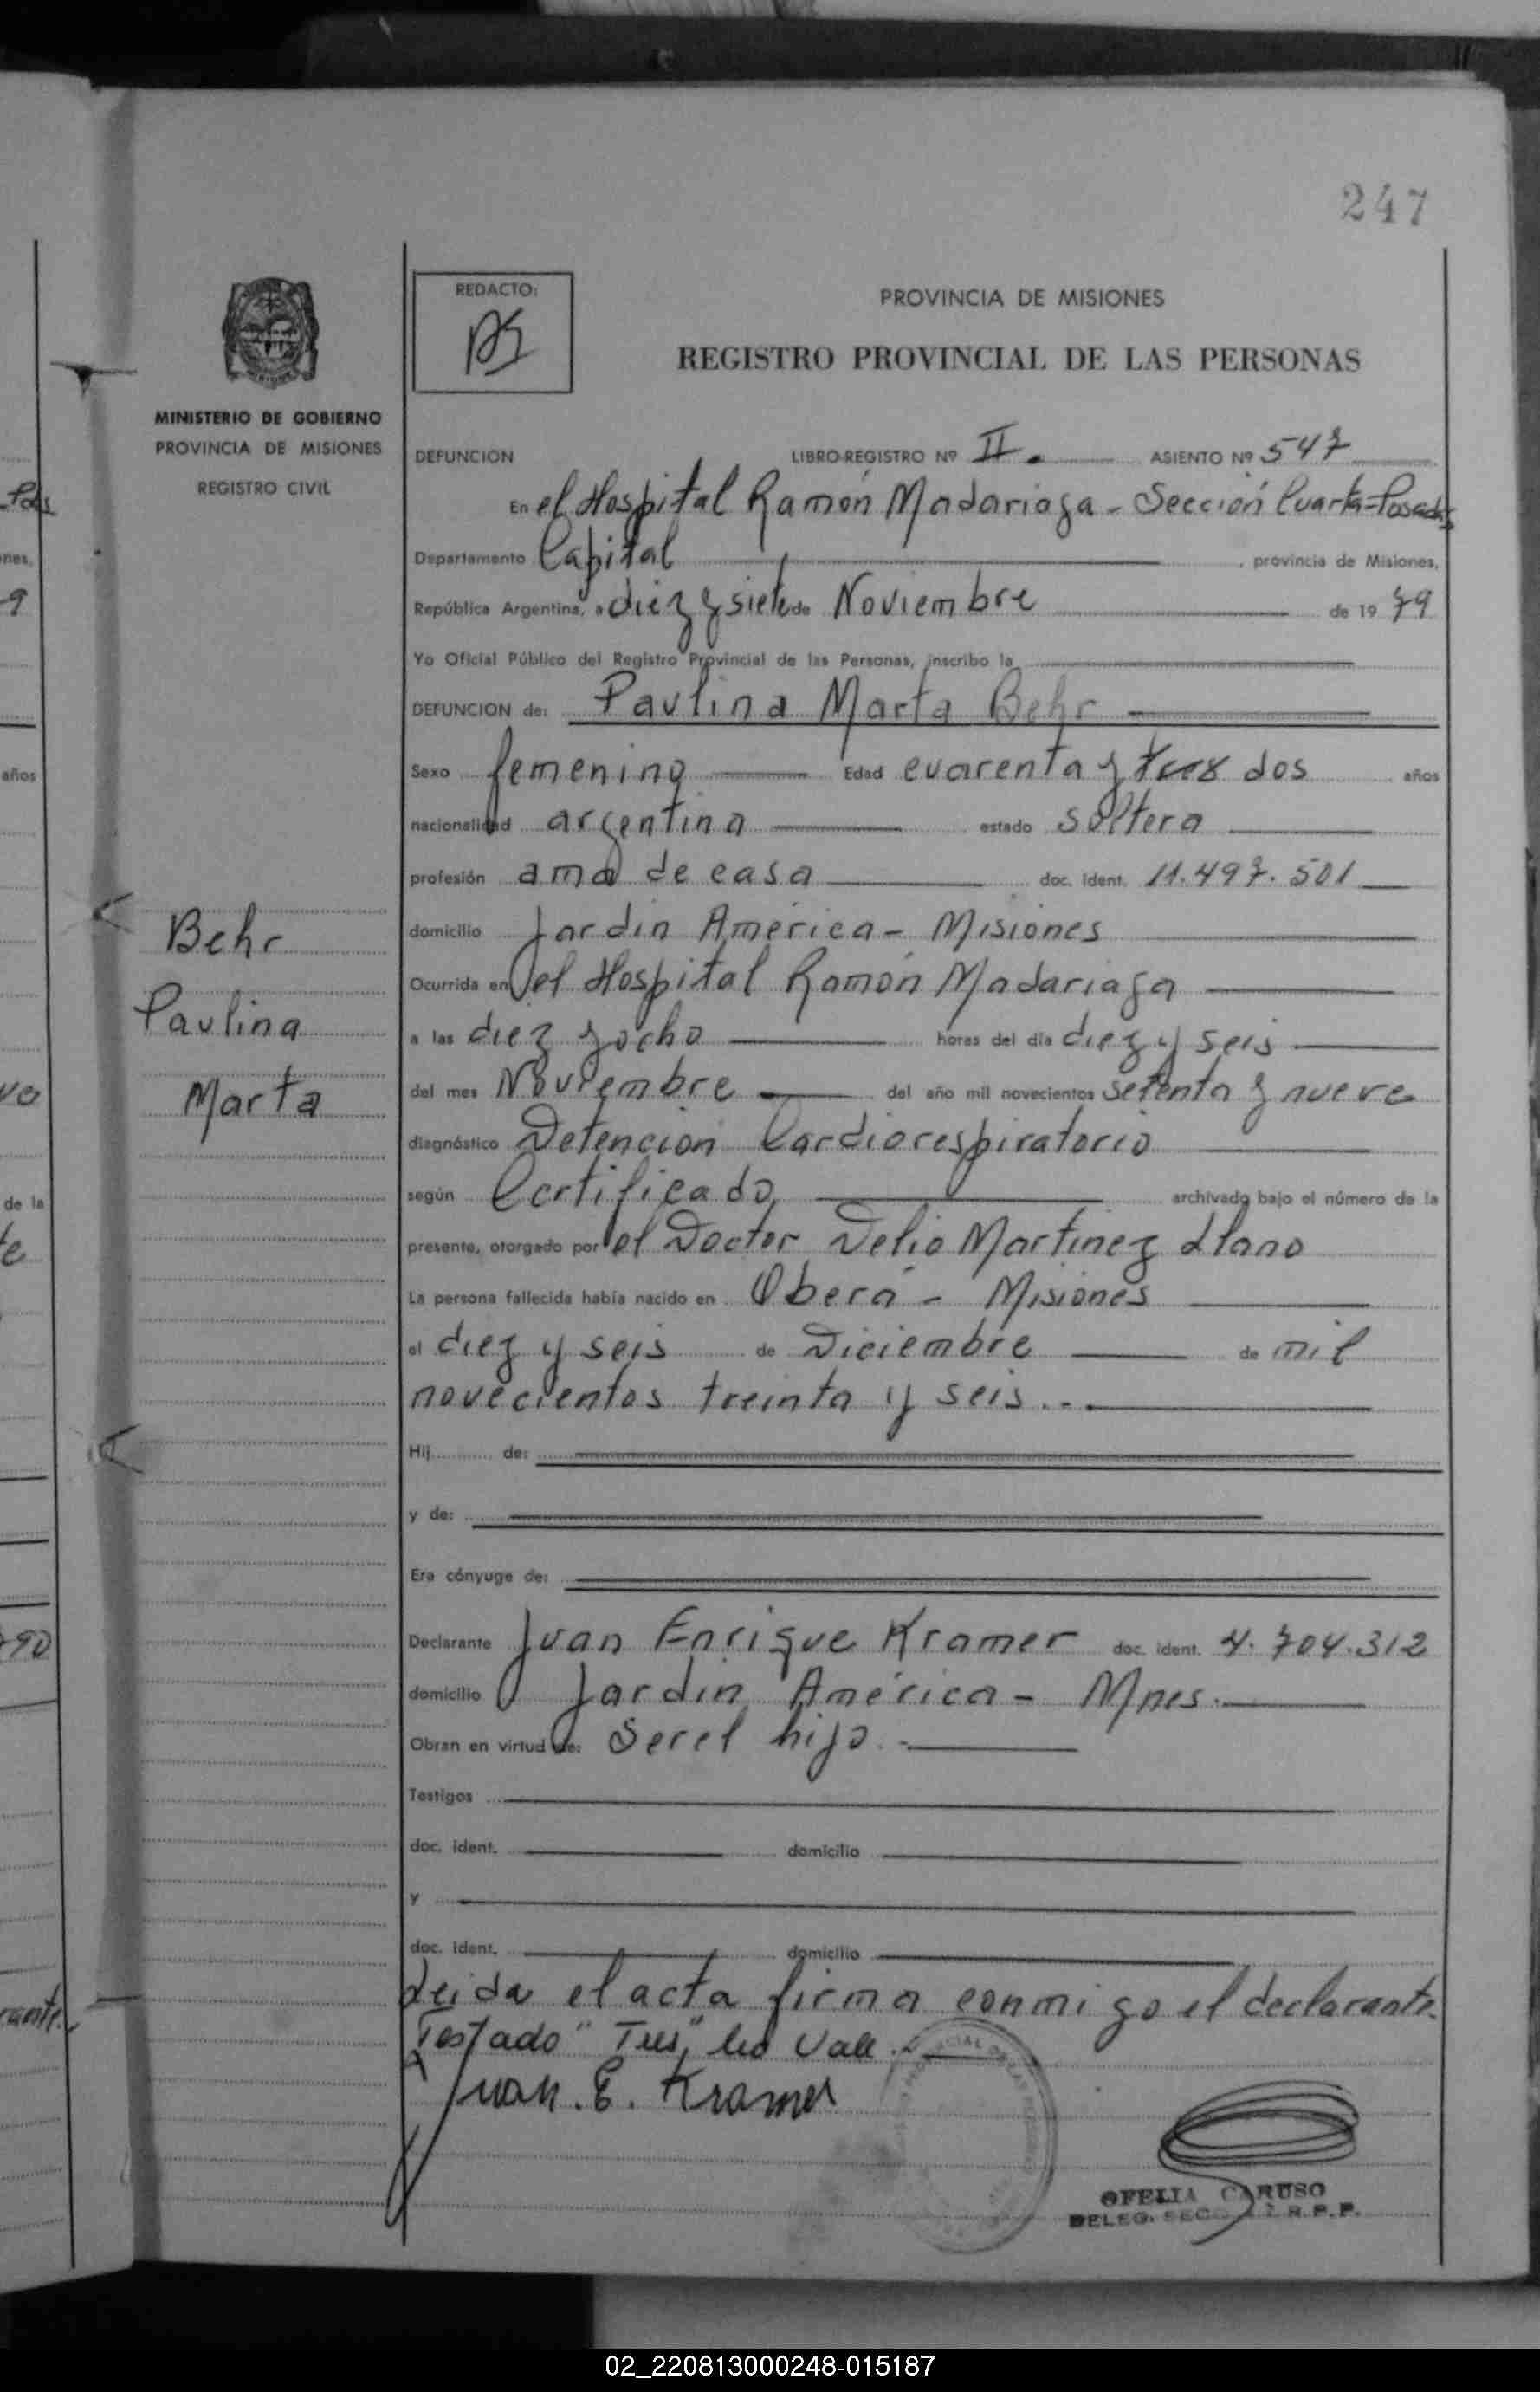 247
REDACTO:
PROVINCIA DE MISIONES
REGISTRO PROVINCIAL DE LAS PERSONAS
MINISTERIO DE GOBIERNO
PROVINCIA DE MISIONES
REGISTRO CIVIL
DEFUNCION LIBRO-REGISTRO Nº II. ASIENTO Nº 547
En el Hospital Ramón Madariaga - Sección Cuarta=Posadas
Departamento Capital, provincia de Misiones,
República Argentina, a diez y siete de Noviembre de 1979
Yo Oficial Público del Registro Provincial de las Personas, inscribo la
DEFUNCION de: Paulina Marta Behr
Sexo femenino Edad cuarenta y tres dos años
nacionalidad argentina estado soltera
profesión ama de casa doc. ident. 11.497.501
domicilio Jardin América - Misiones
Ocurrida en el Hospital Ramón Madariaga
a las diez y ocho horas del día diez y seis
del mes Noviembre del año mil novecientos setenta y nueve
diagnóstico Detención Cardiorespiratorio
según Certificado archivado bajo el número de la
presente, otorgado por el Doctor Delio Martinez Llano
La persona fallecida había nacido en Oberá - Misiones
el diez y seis de Diciembre de mil
novecientos treinta y seis.--
Hij de:
y de:
Era cónyuge de:
Declarante Juan Enrique Kramer doc. ident. 4.704.312
domicilio Jardin América - Mnes.
Obran en virtud de: Ser el hijo.-
Testigos
doc. ident. domicilio
y
doc. ident. domicilio
Leida el acta firma conmigo el declarante.
Testado "Tres" No Vale.-
Juan. E. Kramer
OFELIA CARUSO
DELEG. SECC. R.P.P.
Behr
Paulina
Marta
Pds
nes,
9
años
vo
de la
te
90
rante.
02_220813000248-015187